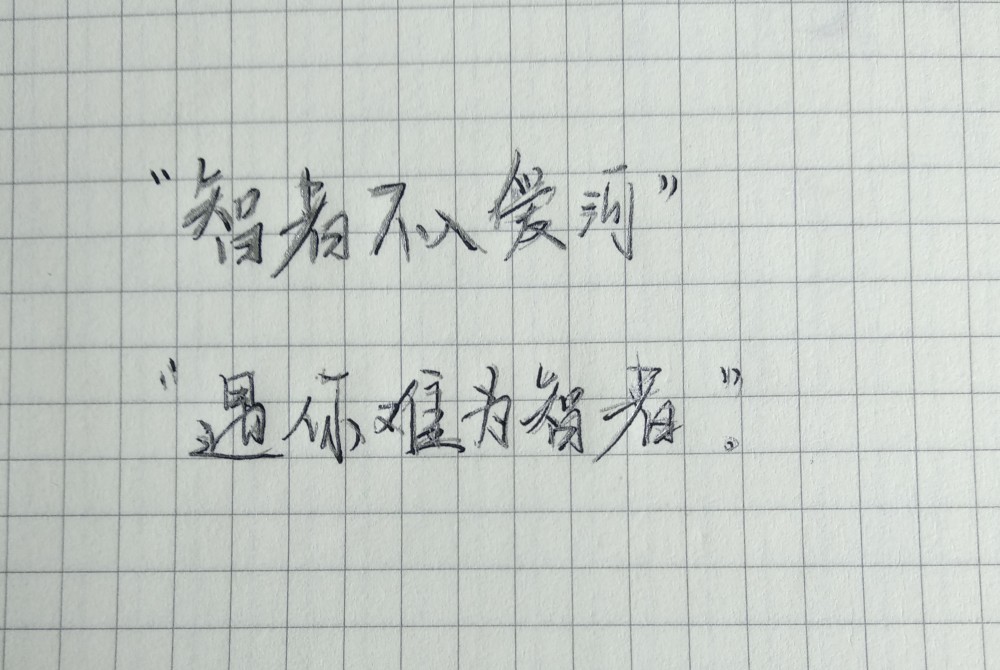 “智者不入爱河”
“遇你难为智者”。